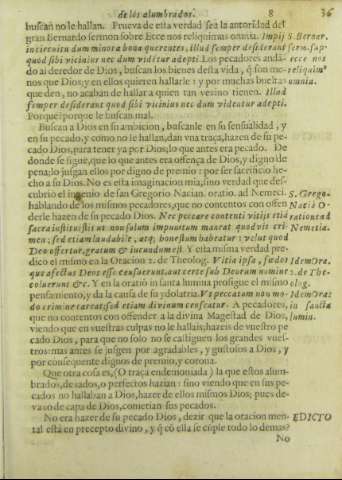 de los alumbrados. 8 36
buscan no le hallan. Prueva de esta verdad sea la autoridad del
gran Bernardo sermon sobre Ecce nos reliquimus omnia. Impij S. Berner.
in circuitu dum minora bona querentes, illud semper desiderant serm. sup-
quod sibi vicinius nec dum videtur adepti. Los pecadores andã- ecce nos
do al deredor de Dios, buscan los bienes desta vida, q̃ son me- reliquim⁹
nos que Dios; y en ellos quieren hallarle: y por muchas bueltas omnia.
que den, no acaban de hallar a quien tan vezino tienen. Illud
semper desiderant quod sibi vicinius nec dum videtur adepti.
Porque? porque le buscan mal.
Buscan a Dios en su ambicion, buscanle en su sensualidad, y
en su pecado, y como no le hallan, dan vna traça, hazen de su pe-
cado Dios, para tener ya por Dios, lo que antes era pecado. De
donde se sigue, que lo que antes era ofensa de Dios, y digno de
pena; lo juzgan ellos por digno de premio: por ser sacrificio he-
cho a su Dios. No es esta imaginacion mia, sino verdad que des-
cubrio el ingenio de san Gregorio Nacian. oratio. ad Nemeci. S. Grego.
hablando de los mismos pecadores, que no contentos con offen Naciã O-
derle hazen de su pecado Dios. Nec peccare contenti vitijs etiã ration ad
sacra instituistis ut non solum impunitum maneat quod vis cri- Nemetia.
men; sed etiam laudabile, atq; honestum habeatur: velut quod
Deo offertur, gratum & iucundum est. Y esta misma verdad pre-
dico el mismo en la Oracion 2. de Theolog. Vitia ipsa, sudor Idem Ora.
que afectus Deos esse censuerunt, aut certe sub Deorum nomine 2. de The-
coluerunt &c. Y en la oratiõ in santa lumina prosigue el mismo olog.
pensamiento, y da la causa de su ydolatria. Vt peccatum non mo- Idem Ora:
do crimine careat, sed etiam divinum censeatur. A pecadores, in sancta
que no contentos con offender a la divina Magestad de Dios, lumin.
viendo que en vuestras culpas no le hallais, hazeis de vuestro pe
cado Dios, para que no solo no se castiguen los grandes vues-
tros: mas antes se juzgen por agradables, y gustosos a Dios, y
por consequente dignos de premio, y corona.
Que otra cosa es, (O traça endemoniada) la que estos alum-
brados, dexados, o perfectos hazian: sino viendo que en sus pe-
cados no hallaban a Dios, hazer de ellos mismos Dios; pues de-
vaxo de capa de Dios, cometian sus pecados.
No era hazer de su pecado Dios, dezir que la oracion men- EDICTO
tal está en precepto divino, y q̃ cõ ella se cũple todo lo demas?
No